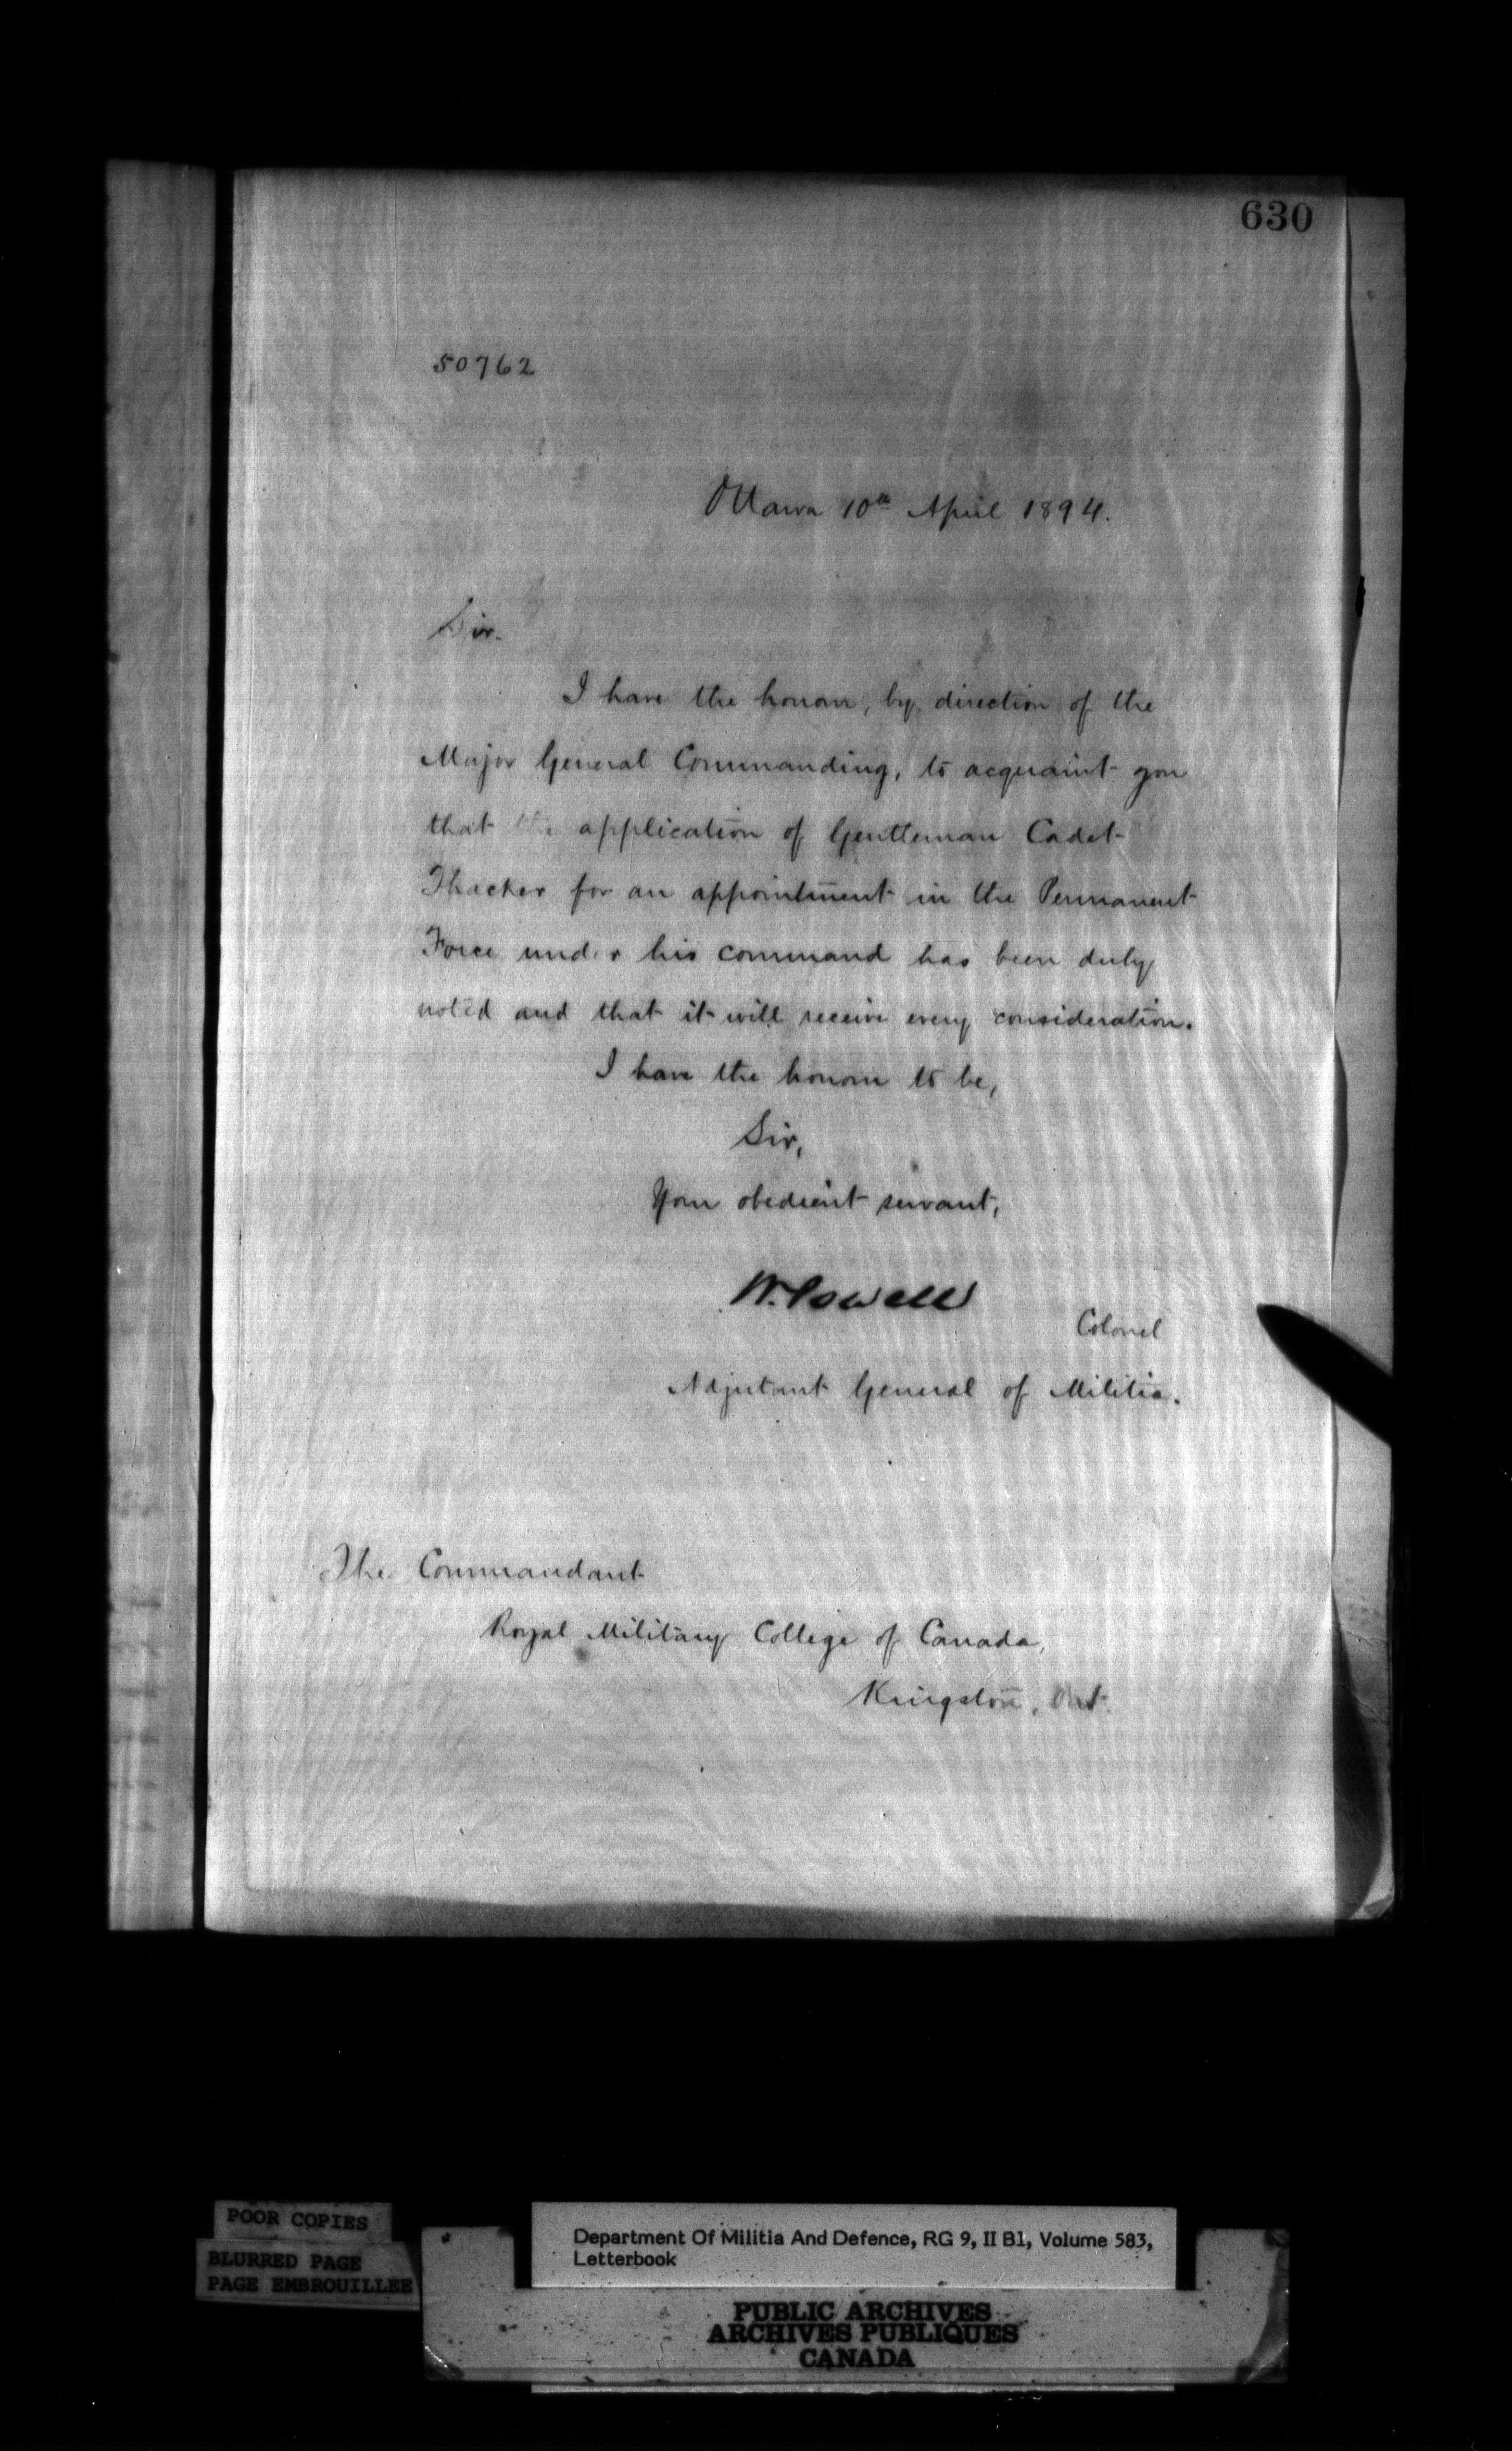 630
50762
Ottawa 10th April 1894.
Sir.
I have the honour, by direction of the
Major General Commanding, to acquaint you
that the application of Gentleman Cadet
Thacker for an appointment in the Permanent
Force under his command has been duly
noted and that it will receive every consideration.
I have the honour to be,
Sir,
Your obedient servant,
W. Powell
Colonel
Adjutant General of Militia.
The Commandant
Royal Military College of Canada,
Kingston, Ont.
POOR COPIES
BLURRED PAGE
PAGE EMBROUILLEE
Department Of Militia And Defence, RG 9, II B1, Volume 583,
Letterbook
PUBLIC ARCHIVES
ARCHIVES PUBLIQUES
CANADA